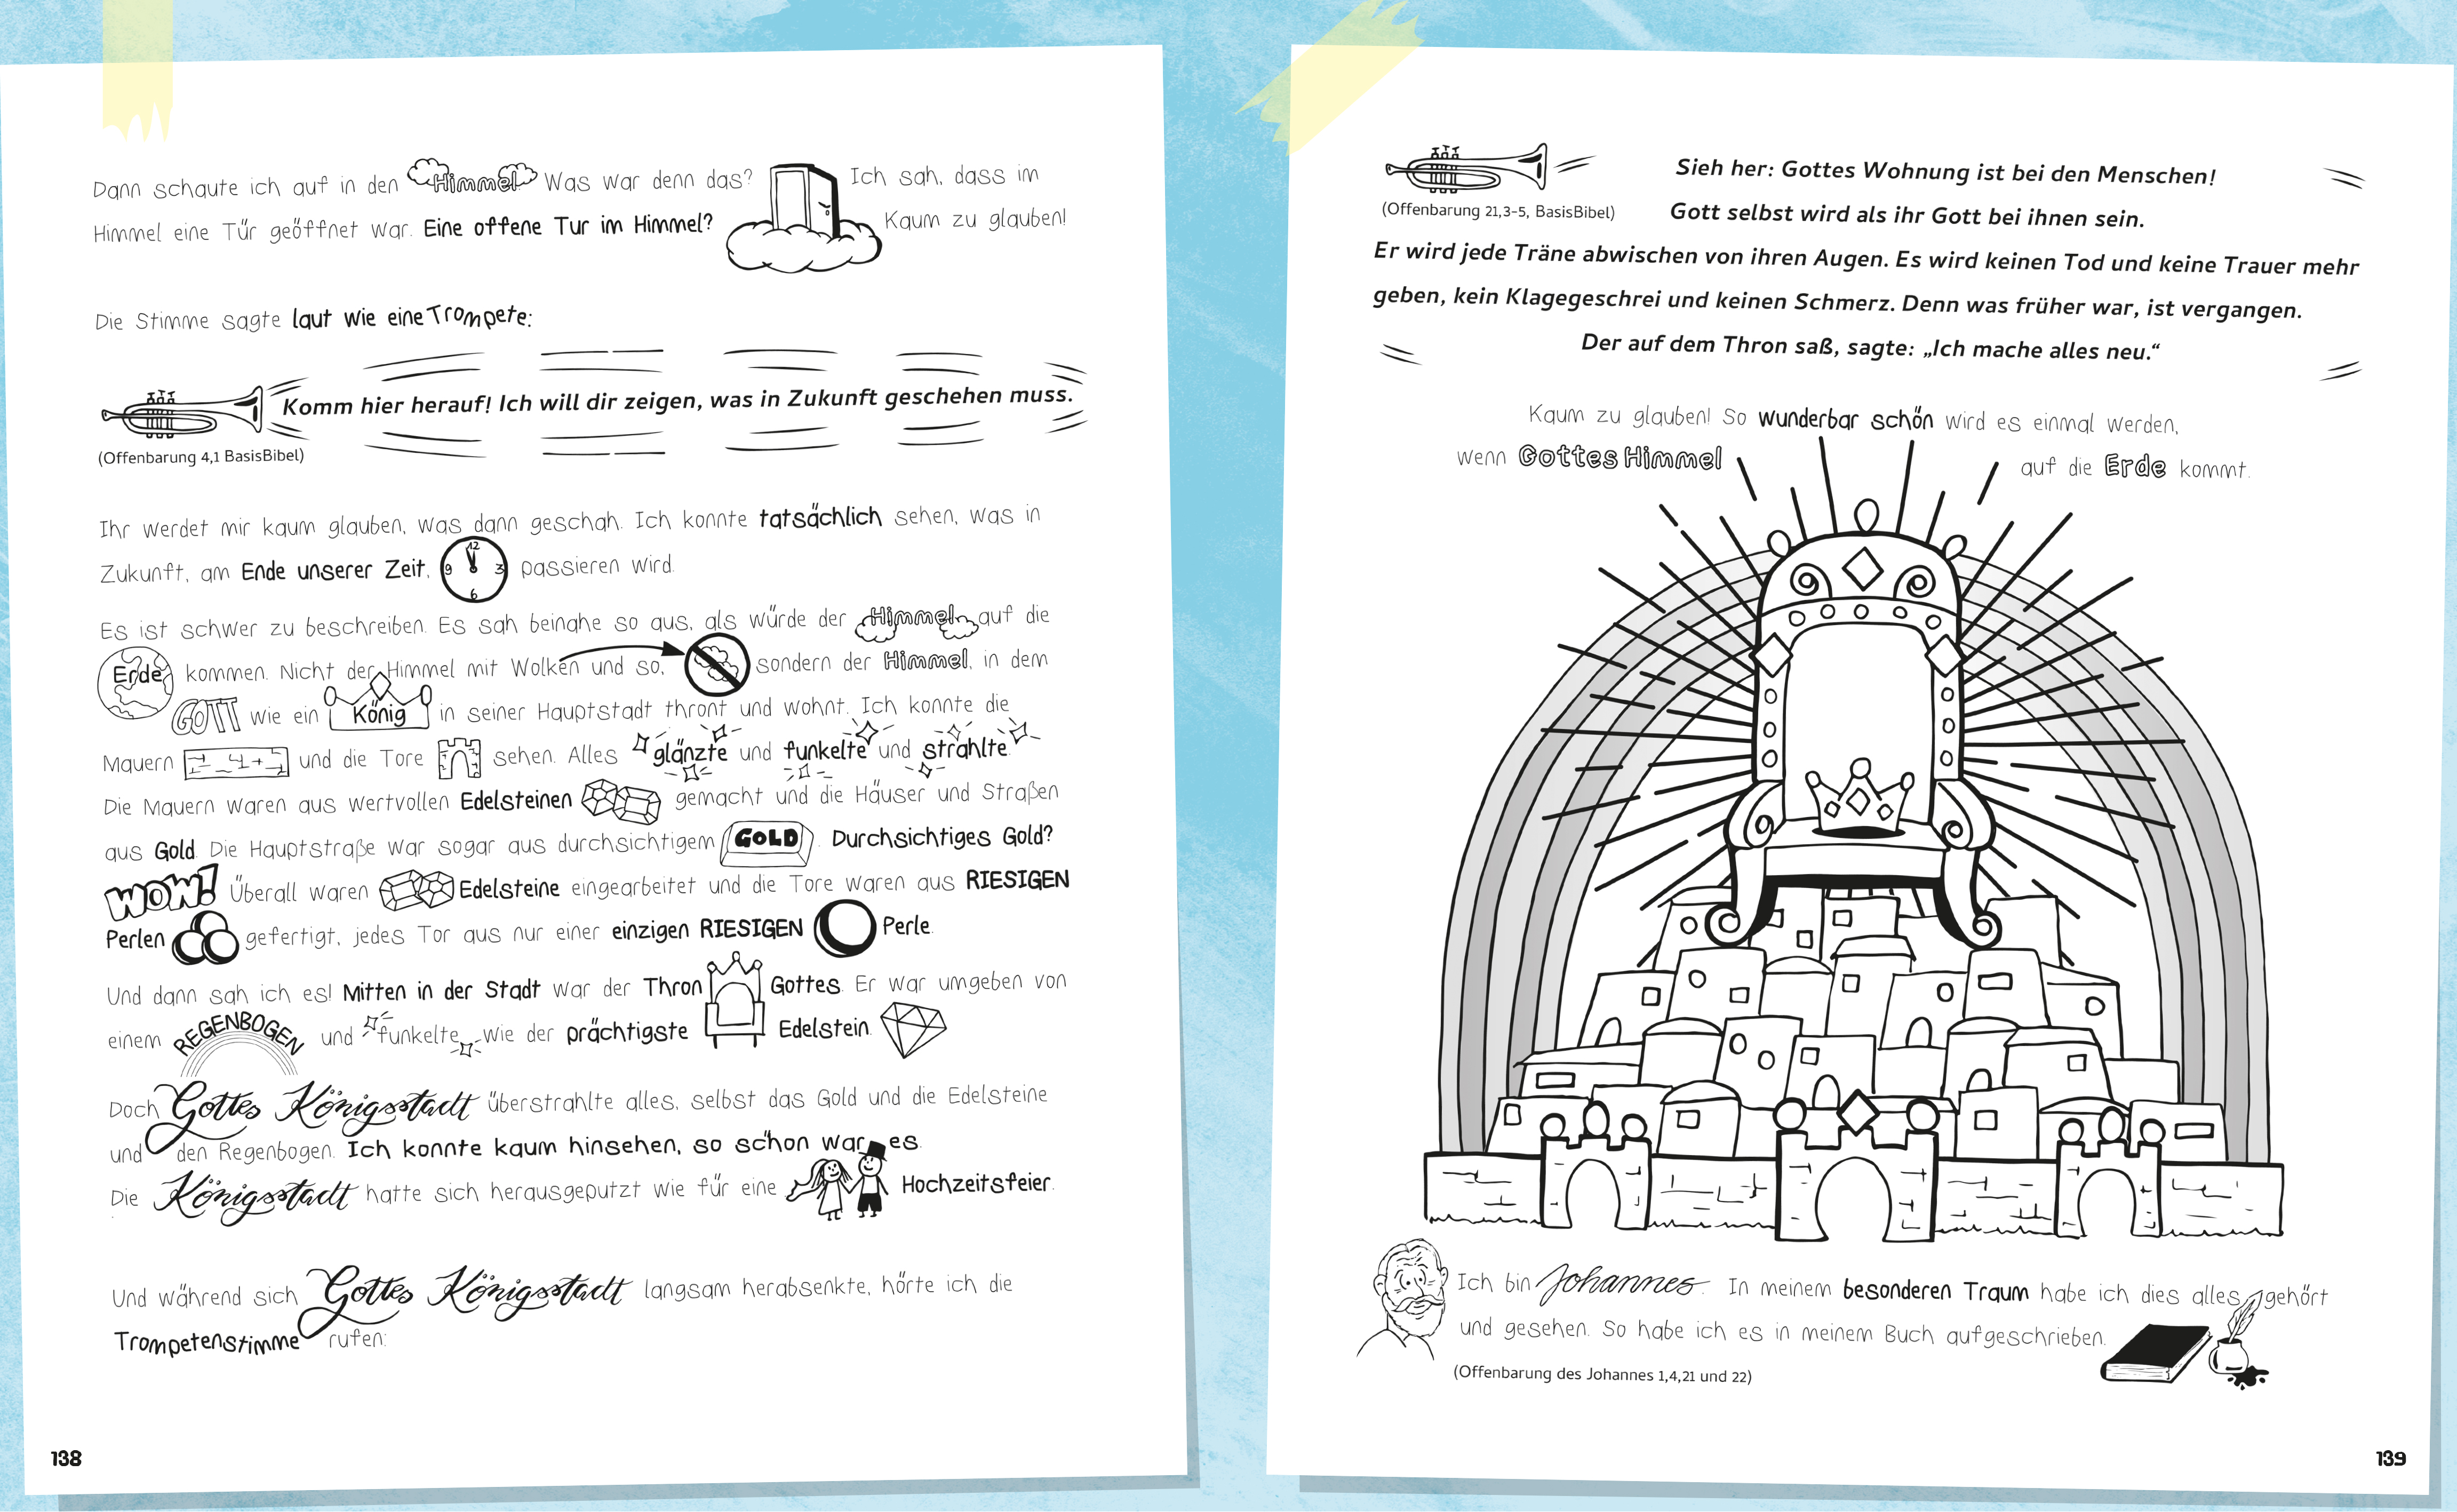 Dann schaute ich auf in den Himmel. Was war denn das? Ich sah, dass im
Himmel eine Tür geöffnet war. Eine offene Tur im Himmel? Kaum zu glauben!
Die Stimme sagte laut wie eine Trompete:
Komm hier herauf! Ich will dir zeigen, was in Zukunft geschehen muss.
(Offenbarung 4,1 BasisBibel)
Ihr werdet mir kaum glauben, was dann geschah. Ich konnte tatsächlich sehen, was in
Zukunft, am Ende unserer Zeit, 12 3 6 9 passieren wird.
Es ist schwer zu beschreiben. Es sah beinahe so aus, als würde der Himmel auf die
Erde kommen. Nicht der Himmel mit Wolken und so, sondern der Himmel, in dem
GOTT wie ein König in seiner Hauptstadt thront und wohnt. Ich konnte die
Mauern und die Tore sehen. Alles glänzte und funkelte und strahlte.
Die Mauern waren aus wertvollen Edelsteinen gemacht und die Häuser und Straßen
aus Gold. Die Hauptstraße war sogar aus durchsichtigem GOLD. Durchsichtiges Gold?
WOW! Überall waren Edelsteine eingearbeitet und die Tore waren aus RIESIGEN
Perlen gefertigt, jedes Tor aus nur einer einzigen RIESIGEN Perle.
Und dann sah ich es! Mitten in der Stadt war der Thron Gottes. Er war umgeben von
einem REGENBOGEN und funkelte wie der prächtigste Edelstein.
Doch Gottes Königsstadt überstrahlte alles, selbst das Gold und die Edelsteine
und den Regenbogen. Ich konnte kaum hinsehen, so schön war es.
Die Königsstadt hatte sich herausgeputzt wie für eine Hochzeitsfeier.
Und während sich Gottes Königsstadt langsam herabsenkte, hörte ich die
Trompetenstimme rufen:
138
Sieh her: Gottes Wohnung ist bei den Menschen!
(Offenbarung 21,3-5, BasisBibel)
Gott selbst wird als ihr Gott bei ihnen sein.
Er wird jede Träne abwischen von ihren Augen. Es wird keinen Tod und keine Trauer mehr
geben, kein Klagegeschrei und keinen Schmerz. Denn was früher war, ist vergangen.
Der auf dem Thron saß, sagte: „Ich mache alles neu.“
Kaum zu glauben! So wunderbar schön wird es einmal werden,
wenn Gottes Himmel auf die Erde kommt.
Ich bin Johannes. In meinem besonderen Traum habe ich dies alles gehört
und gesehen. So habe ich es in meinem Buch aufgeschrieben.
(Offenbarung des Johannes 1,4,21 und 22)
139